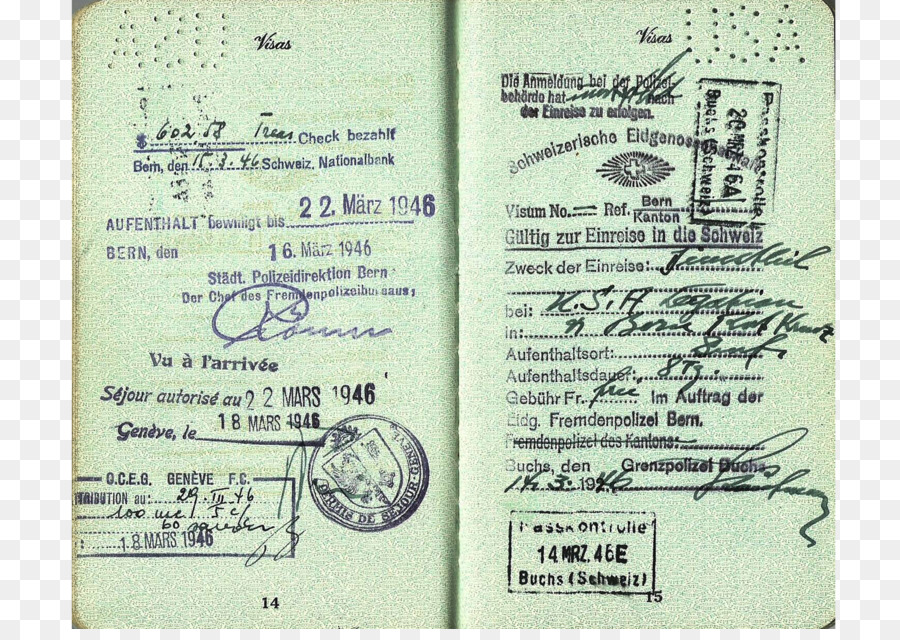 Visas
$ 602,58 Trav. Check bezahlt
Bern, den 15.3.46 Schweiz. Nationalbank
AUFENTHALT bewilligt bis 22. März 1946
BERN, den 16. März 1946
Städt. Polizeidirektion Bern
Der Chef des Fremdenpolizeibureaus;
Vu à l'arrivée
Séjour autorisé au 22 MARS 1946
Genève, le 18 MARS 1946
PERMIS DE SÉJOUR · GENÈVE
O.C.E.G. GENÈVE F.C.
TRIBUTION au: 29. III 46
60
18 MARS 1946
14
Visas
Die Anmeldung bei der Polizei-
behörde hat nach
der Einreise zu erfolgen.
Schweizerische Eidgenossenschaft
Passkontrolle
20. MRZ. 46 A
Buchs (Schweiz)
Visum No. — Ref. Bern
Kanton
Gültig zur Einreise in die Schweiz
Zweck der Einreise:
bei: U.S.A Legation
in:
Aufenthaltsort:
Aufenthaltsdauer: 8 Tg.
Gebühr Fr. Im Auftrag der
Eidg. Fremdenpolizei Bern.
Fremdenpolizei des Kantons:
Buchs, den Grenzpolizei Buchs
14.3.1946
Passkontrolle
14. MRZ. 46 E
Buchs (Schweiz)
15